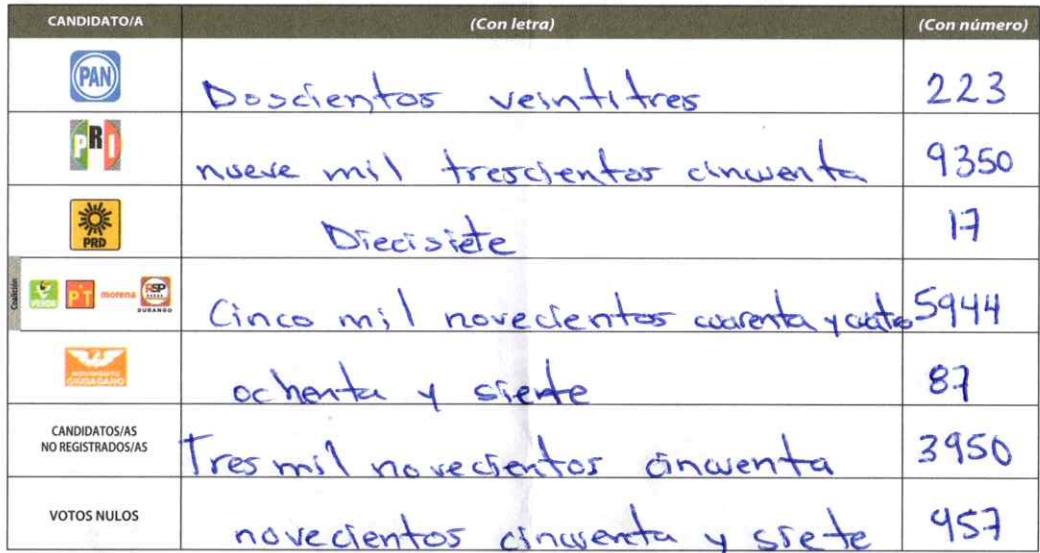 CANDIDATO/A (Con letra) (Con número)
PAN Doscientos veintitres 223
PRI nueve mil trescientos cincuenta 9350
PRD Diecisiete 17
Coalición VERDE PT morena RSP DURANGO Cinco mil novecientos cuarenta y cuatro 5944
MOVIMIENTO CIUDADANO ochenta y siente 87
CANDIDATOS/AS
NO REGISTRADOS/AS Tres mil novecientos cincuenta 3950
VOTOS NULOS novecientos cincuenta y siete 957